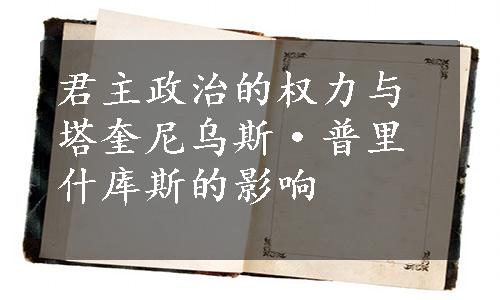 君主政治的权力与
塔奎尼乌斯·普里
什库斯的影响